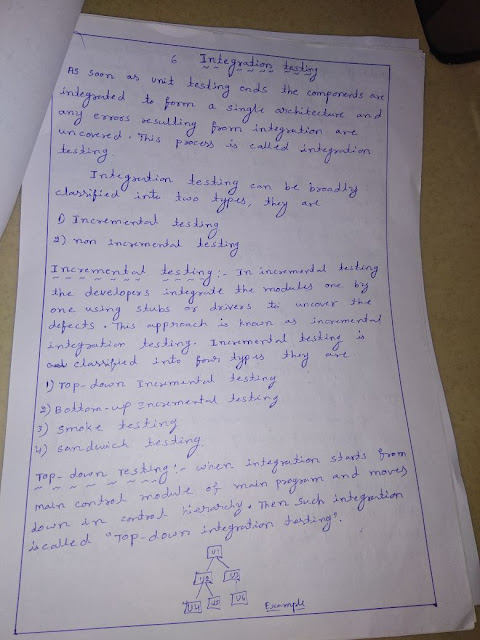 6 Integration testing
As soon as unit testing ends the components are
integrated to form a single architecture and
any errors resulting from integration are
uncovered. This process is called integration
testing.
Integration testing can be broadly
classified into two types, they are
1) Incremental testing
2) non incremental testing
Incremental testing:- In incremental testing
the developers integrate the modules one by
one using stubs or drivers to uncover the
defects. This approach is known as incremental
integration testing. Incremental testing is
classified into four types they are
1) Top-down Incremental testing
2) Bottom-up Incremental testing
3) Smoke testing
4) Sandwich testing
Top-down Testing:- when integration starts from
main control module of main program and moves
down in control hierarchy. Then such integration
is called "Top-down integration testing".
U1
U2 U3
U4 U5 U6
Example